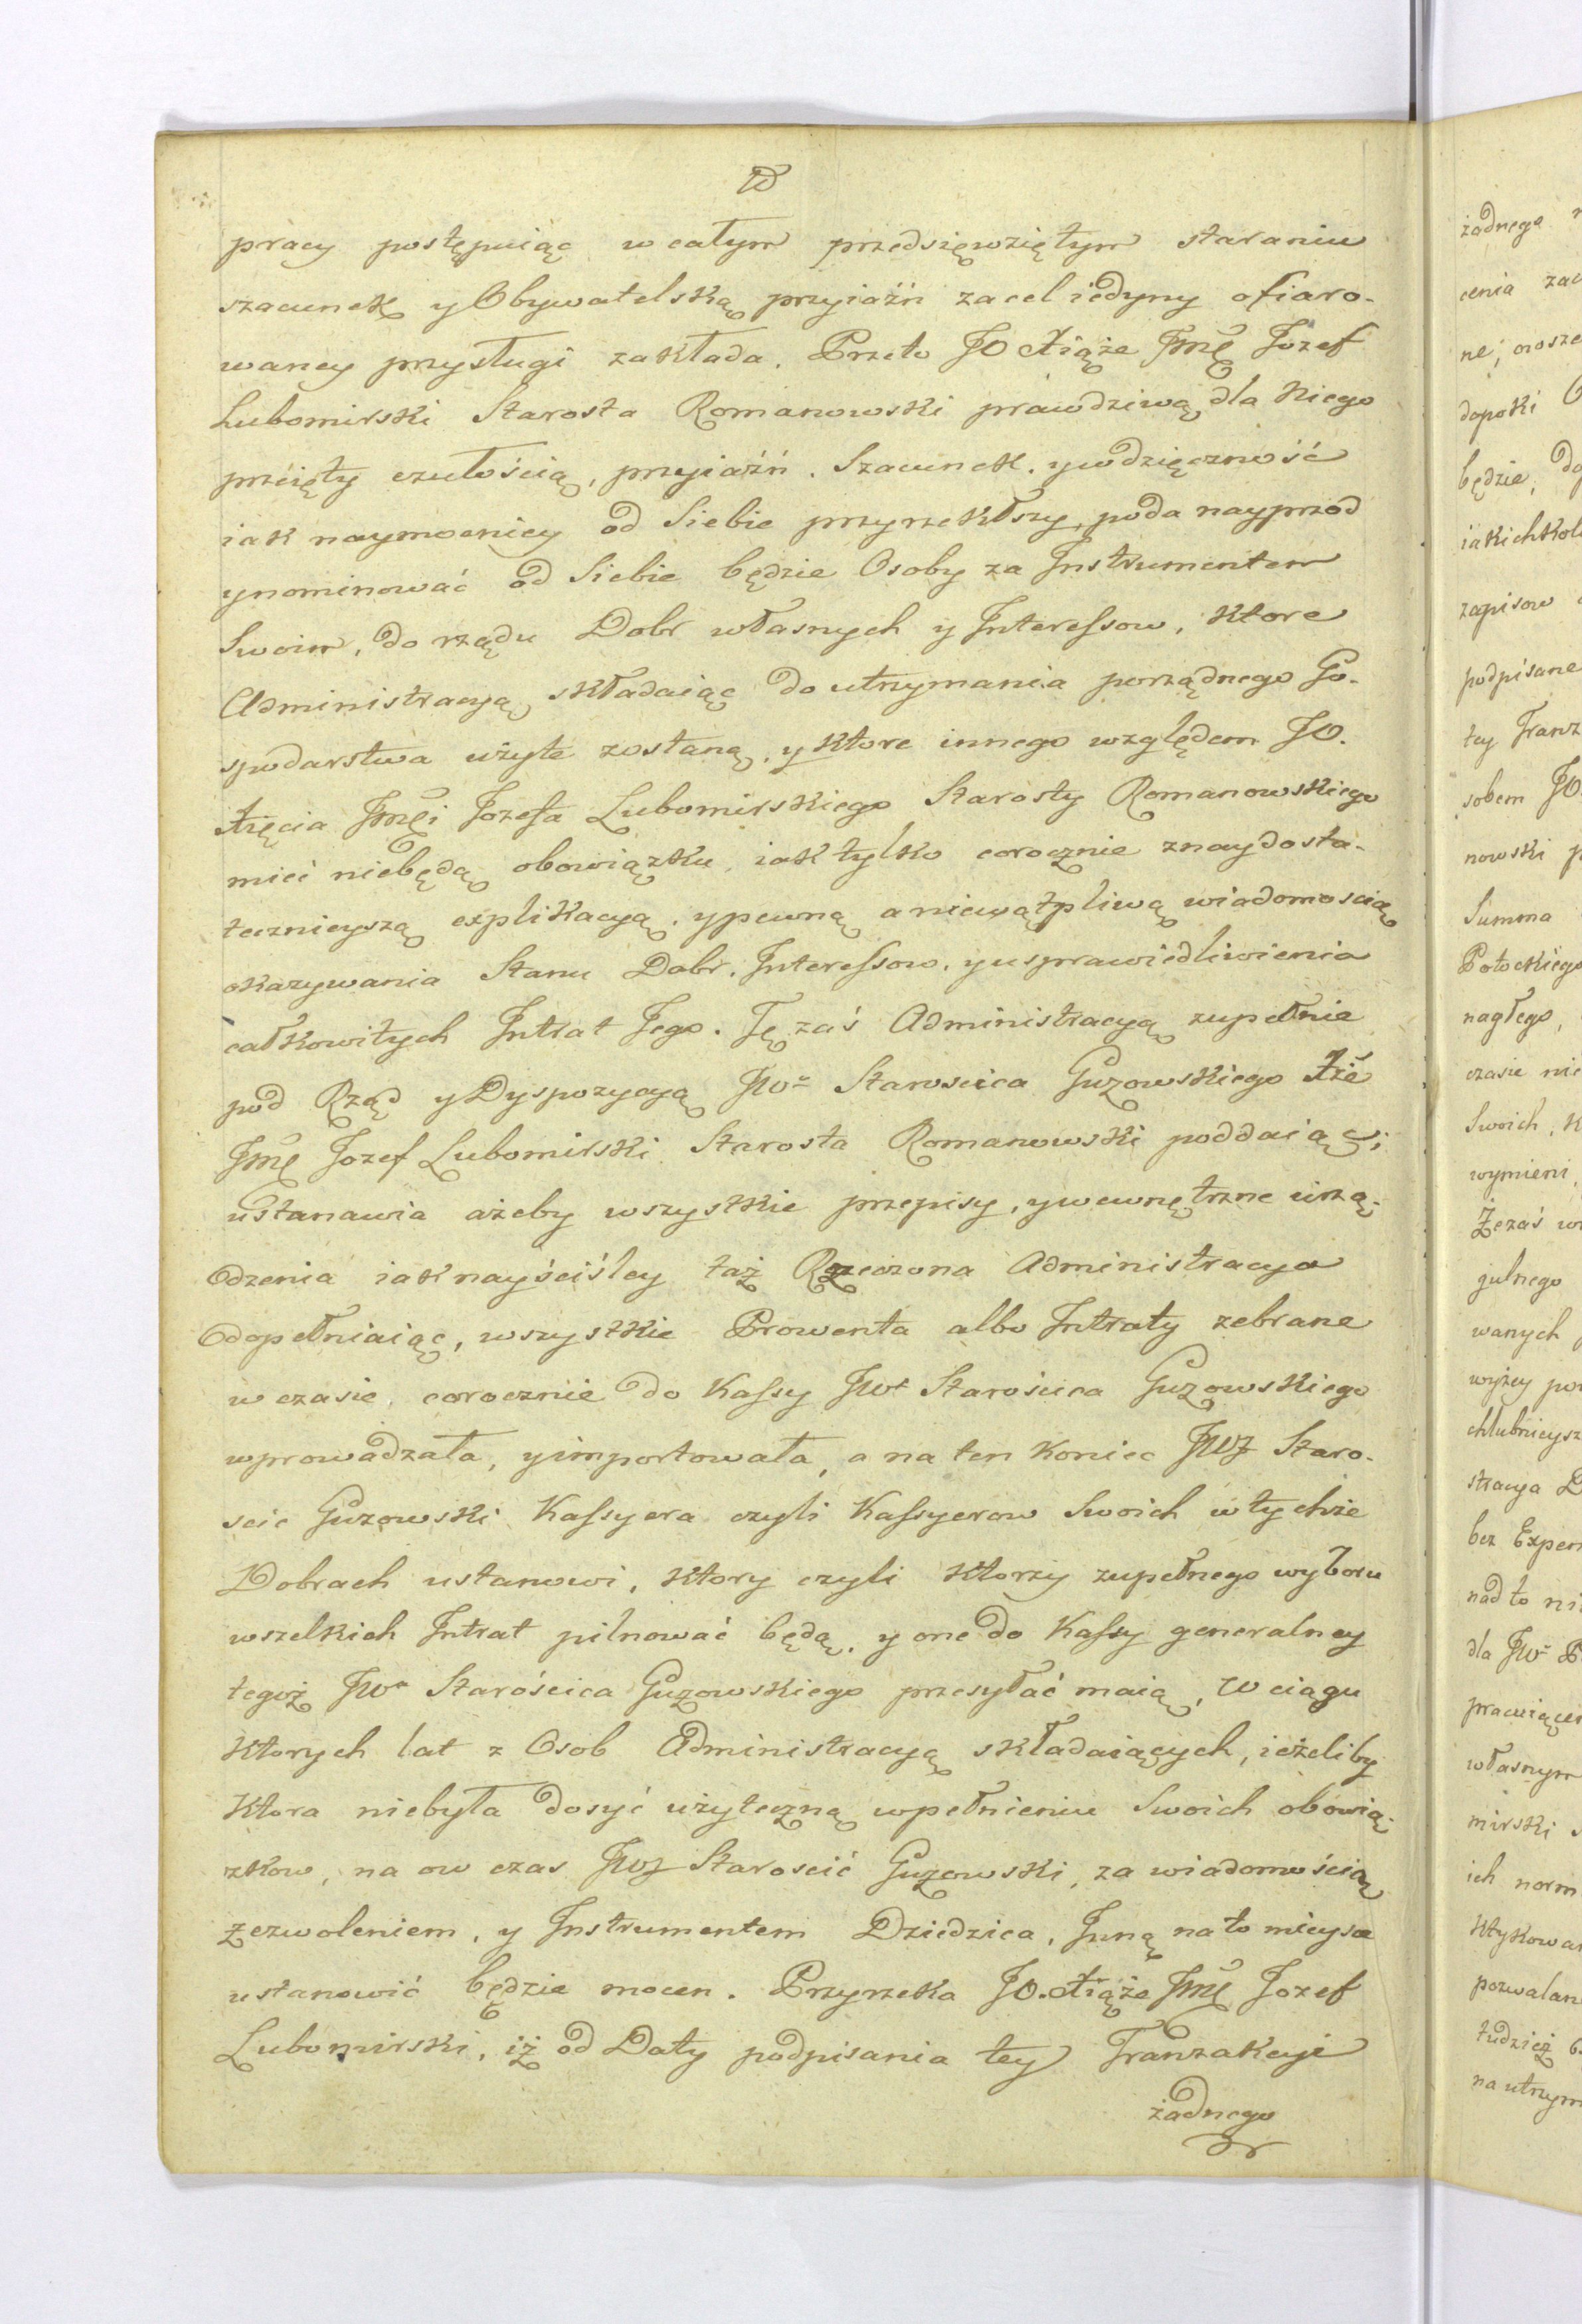 pracy postępuiąc w całym przedsięwziętym staraniu
szacunek y Obywatelską przyiaźń za cel iedyny ofiaro-
waney przysługi zakłada. Przeto JO Xiąże Jmę Jozef
Lubomirski Starosta Romanowski prawdziwą dla Niego
przeięty czułością, przyiaźń. Szacunek. y wdzięczność
iak naymocniey od Siebie przyrzekłszy, poda nayprzod
y nominować od Siebie będzie Osoby za Instrumentem
Swoim, do rządu Dobr własnych y Interessow, ktore
Administracyą składaiąc do utrzymania porządnego Go-
spodarstwa użyte zostaną, y ktore innego względem JO.
Xięcia Jmći Jozefa Lubomirskiego Starosty Romanowskiego
mieć niebędą obowiązku, iak tylko corocznie z naydosta-
tecznieyszą explikacyą, y pewną a niewątpliwą wiadomoscią
okazywania Stanu Dobr, Interessow, y usprawiedliwienia
całkowitych Intrat Jego. Tę zaś Administracyą zupełnie
pod Rząd y Dyspozycyą JWo Staroscica Guzowskiego Xże
Jmę Jozef Lubomirski Starosta Romanowski poddaiąc;
ustanawia ażeby wszystkie przepisy, y wewnętrzne urzą-
dzenia iak nayściśley taż Rzeczona Administracya
dopełniaiąc, wszystkie Prowenta albo Intraty zebrane
w czasie, corocznie do Kassy JWo Starościca Guzowskiego
wprowadzała, y importowała, a na ten koniec JWJ Staro-
scic Guzowski Kassyera czyli Kassyerow Swoich w tychże
Dobrach ustanowi, ktory czyli ktorzy zupełnego wyboru
wszelkich Intrat pilnować będą, y one do Kassy generalney
tegoż JWo Starościca Guzowskiego przesyłać maią, W ciągu
ktorych lat z Osob Administracyą składaiących, ieżeliby
ktora niebyła dosyć użyteczną w pełnieniu Swoich obowią-
zkow, na ow czas JWJ Staroscić Guzowski, za wiadomością
zezwoleniem, y Instrumentem Dziedzica, Inną na to mieysce
ustanowić będzie mocen. Przyrzeka JO. Xiąże Jmę Jozef
Lubomirski, iż od Daty podpisania tey Tranzakcyi
żadnego
żadnego
cenia
dopoki
będzie,
iakichkol
zapisow
podpisane
tey Tranz
sobem JO.
nowski
Summa
Potockiego
nagłego,
czasie nie
Swoich,
wymieni,
Że zaś
gulnego
wanych
wyżey
chlubnieysz
stracya
bez Expen
nad to
dla JWo
pracuiące
własnym
mirski
ich norm
pozwalan
tudzież
na utrzym